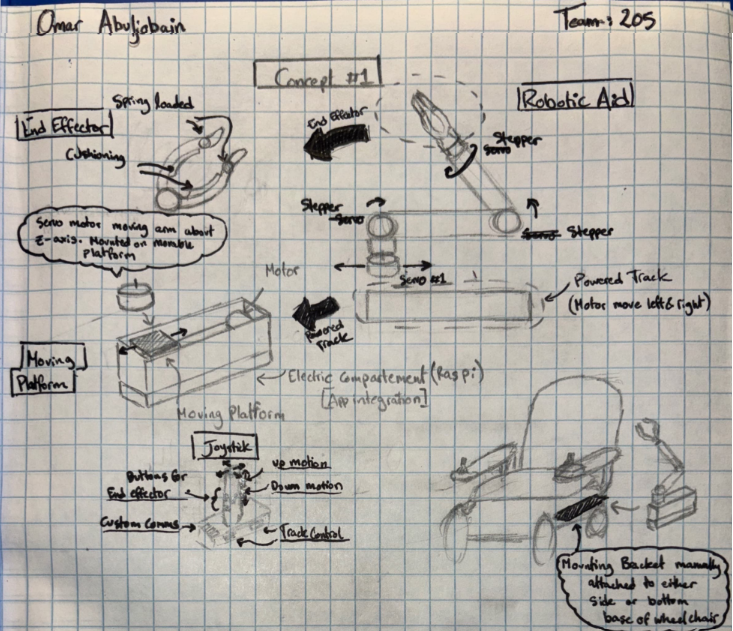 Omar Abuljobain
Team: 205
Concept #1
Robotic Aid
End Effector
Spring loaded
Cushioning
End Effector
Stepper
Servo
Stepper
Servo
Servo Stepper
Servo motor moving arm about
Z-axis. Mounted on movable
platform
Servo #1
Motor
Powered Track
(Motor move left & right)
Powered
Track
Moving
Platform
Electric Compartement (Ras pi)
[App integration]
Moving Platform
Joystick
Buttons for
End effector
up motion
Down motion
Custom Comms
Track Control
Mounting Bracket manually
attached to either
side or bottom
base of wheelchair